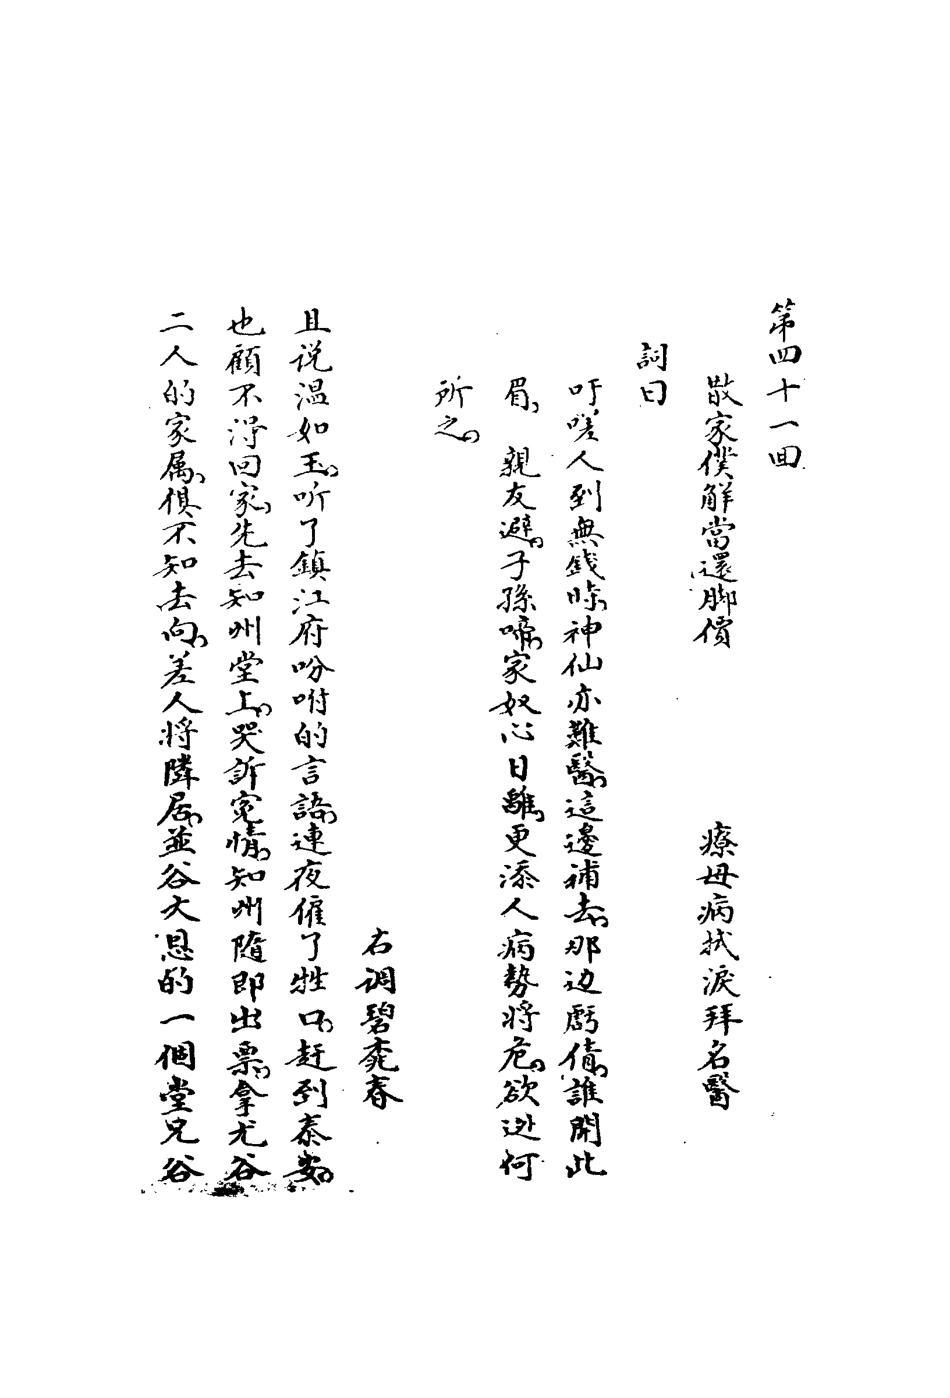 第四十一回
散家僕解當還脚價　療母病拭淚拜名醫
詞曰
吁嗟人到無錢時、神仙亦難醫、這邊補去、那边虧債、誰開此
眉、親友避、子孫啼、家奴心日離、更添人病勢將危、欲逃何
所之、
右调碧桃春
且说温如玉、听了鎮江府吩咐的言語、連夜僱了牲口、赶到泰安、
也顧不得回家、先去知州堂上、哭訴寃情、知州隨即出票、拿尤谷
二人的家属、俱不知去向、差人將隣居、並谷大恩的一個堂兄谷